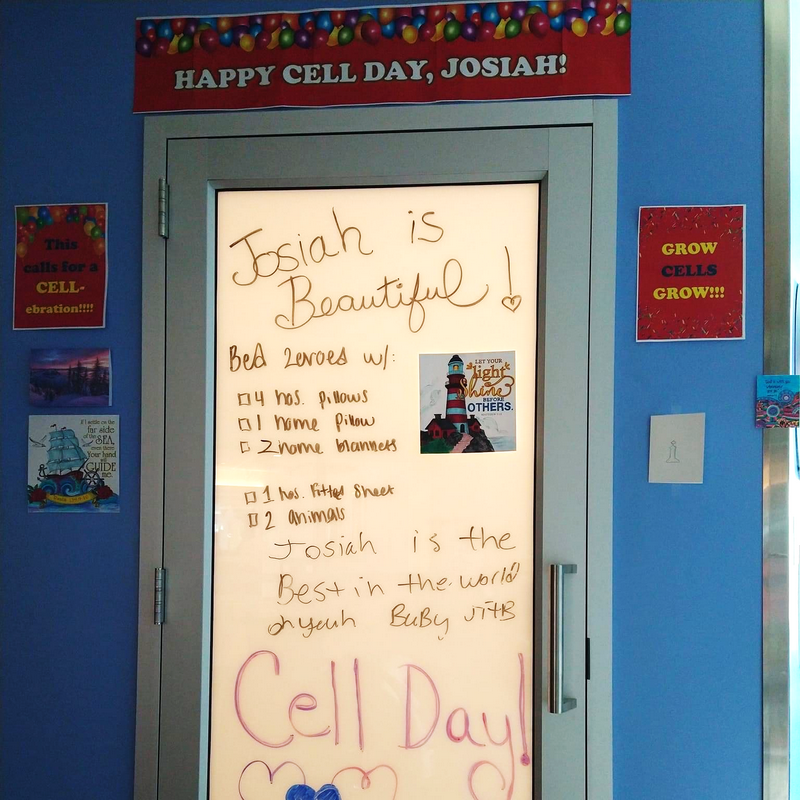 HAPPY CELL DAY, JOSIAH!
This
calls for a
CELL-
ebration!!!!
GROW
CELLS
GROW!!!
Josiah is
Beautiful!
Bed Zeroed w/:
4 hos. pillows
1 home pillow
2 home blankets
1 hos. fitted sheet
2 animals
LET YOUR
light
Shine
BEFORE
OTHERS.
If I settle on the
far side
of the SEA,
even there
Your hand
will GUIDE
me.
Josiah is the
Best in the world
oh yeah BuBy JTTB
Cell Day!